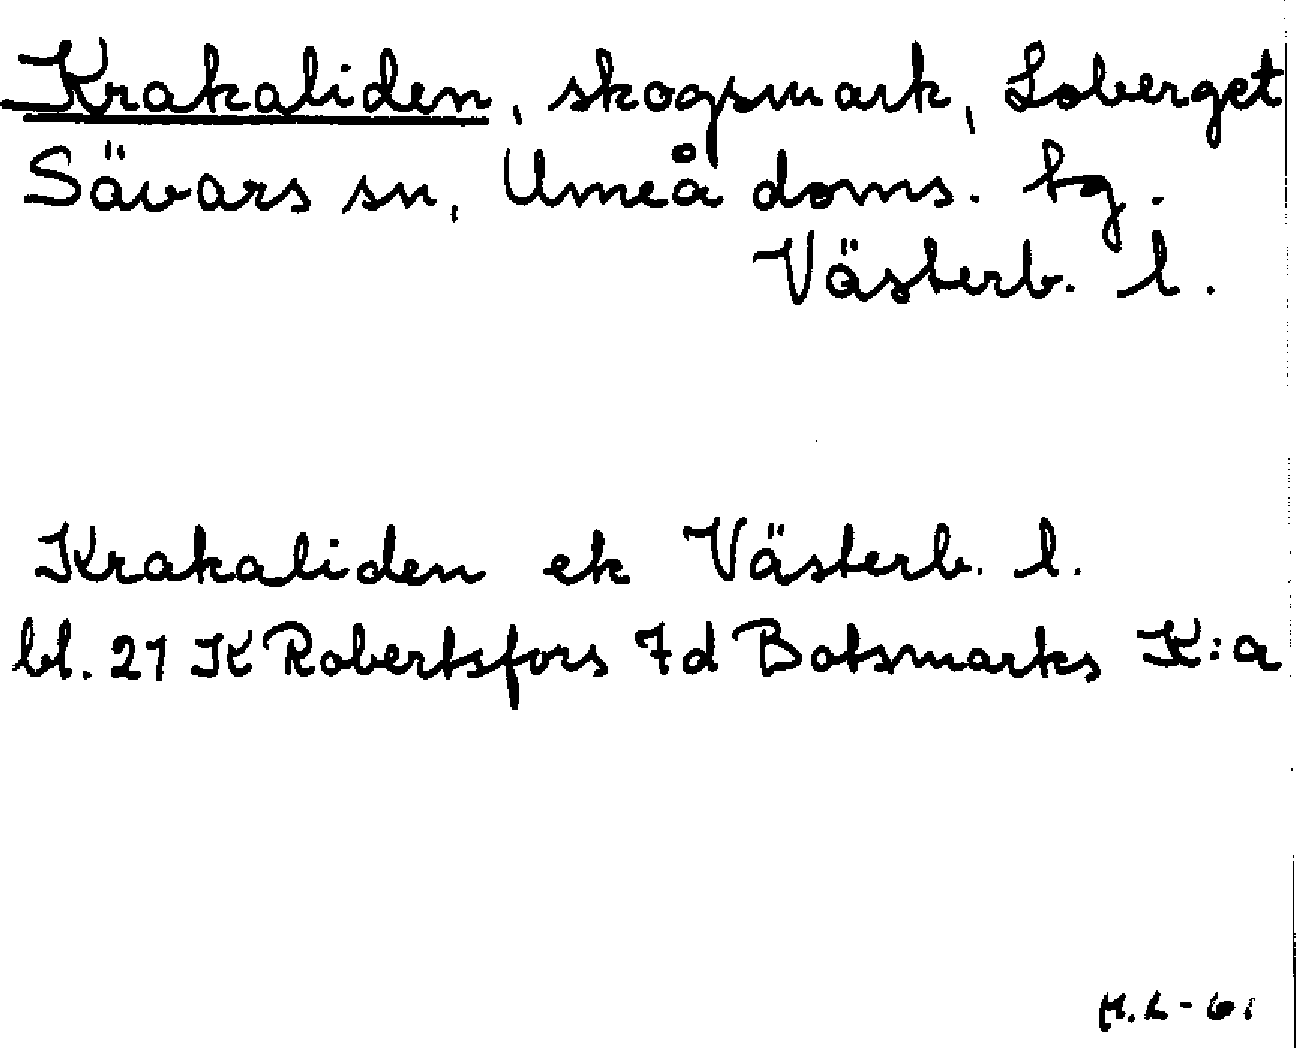 Krakaliden, skogsmark, Loberget
Sävars sn, Umeå doms. tg.
Västerb. l.
Krakaliden ek Västerb. l.
bl. 21 K Robertsfors 7d Botsmarks K:a
H.L-61